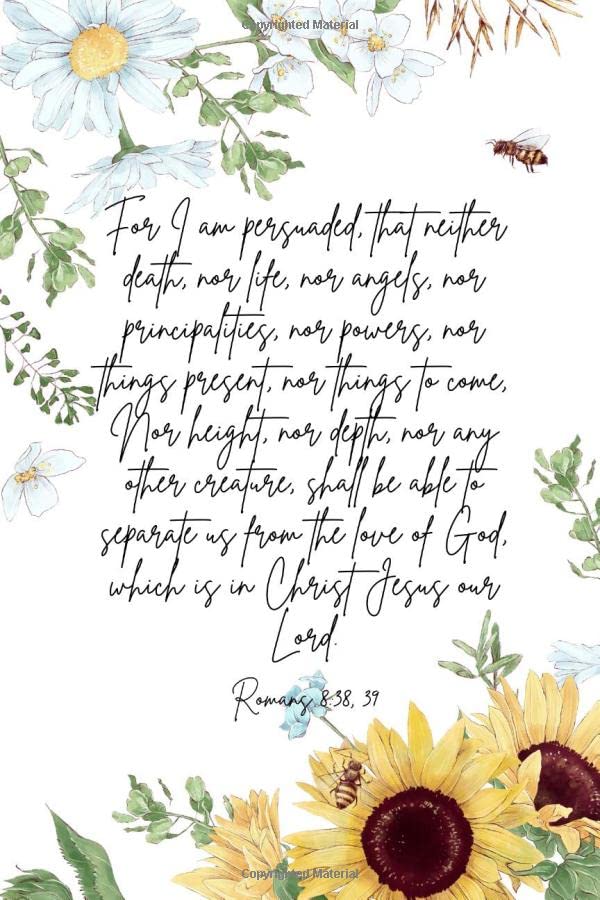 Copyrighted Material
For I am persuaded, that neither
death, nor life, nor angels, nor
principalities, nor powers, nor
things present, nor things to come,
Nor height, nor depth, nor any
other creature, shall be able to
separate us from the love of God,
which is in Christ Jesus our
Lord.
Romans 8:38, 39
Copyrighted Material